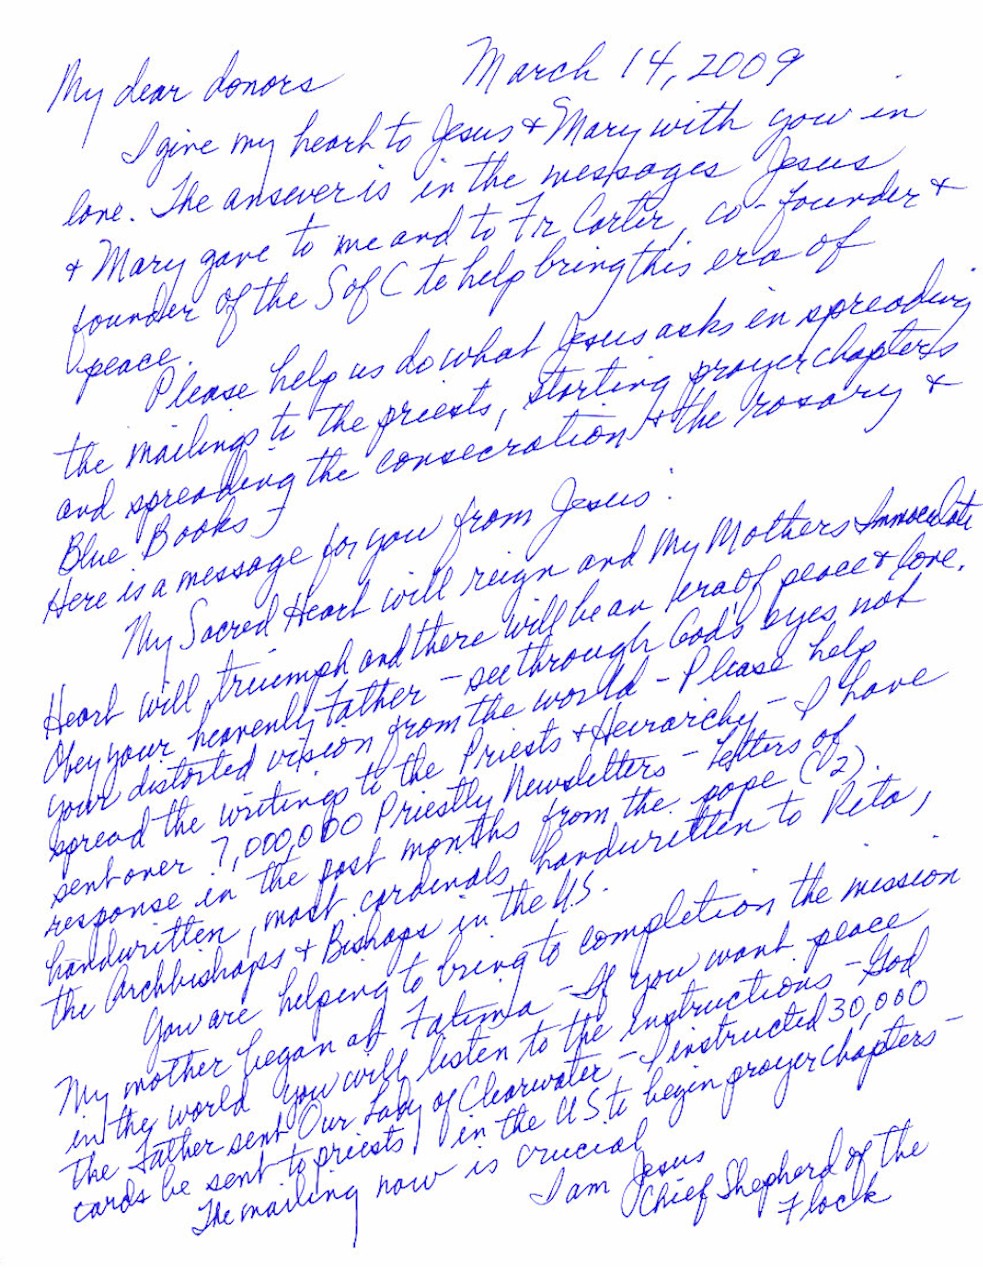 My dear donors March 14, 2009
I give my heart to Jesus & Mary with you in
love. The answer is in the messages Jesus
& Mary gave to me and to Fr Carter, co-founder &
founder of the S of C to help bring this era of
peace.
Please help us do what Jesus asks in spreading
the mailings to the priests, starting prayer chapters
and spreading the consecration & the rosary &
Blue Books -
Here is a message for you from Jesus:
My Sacred Heart will reign and My Mothers Immaculate
Heart will triumph and there will be an era of peace & love.
Obey your heavenly Father - see through God's eyes, not
your distorted vision from the world - Please help
spread the writings to the Priests & Heirarchy - I have
sent over 7,000,000 Priestly Newsletters - Letters of
response in the past months from the pope (2).
handwritten, most cardinals, handwritten to Rita,
the Archbishops & Bishops in the U.S.
You are helping to bring to completion the mission
My mother began at Fatima - If you want peace
in the world you will listen to the instructions - God
the Father sent Our Lady of Clearwater, - I instructed 30,000
cards be sent to priests, in the U.S. to begin prayer chapters -
The mailing now is crucial
I am Jesus
Chief Shepherd of the
Flock